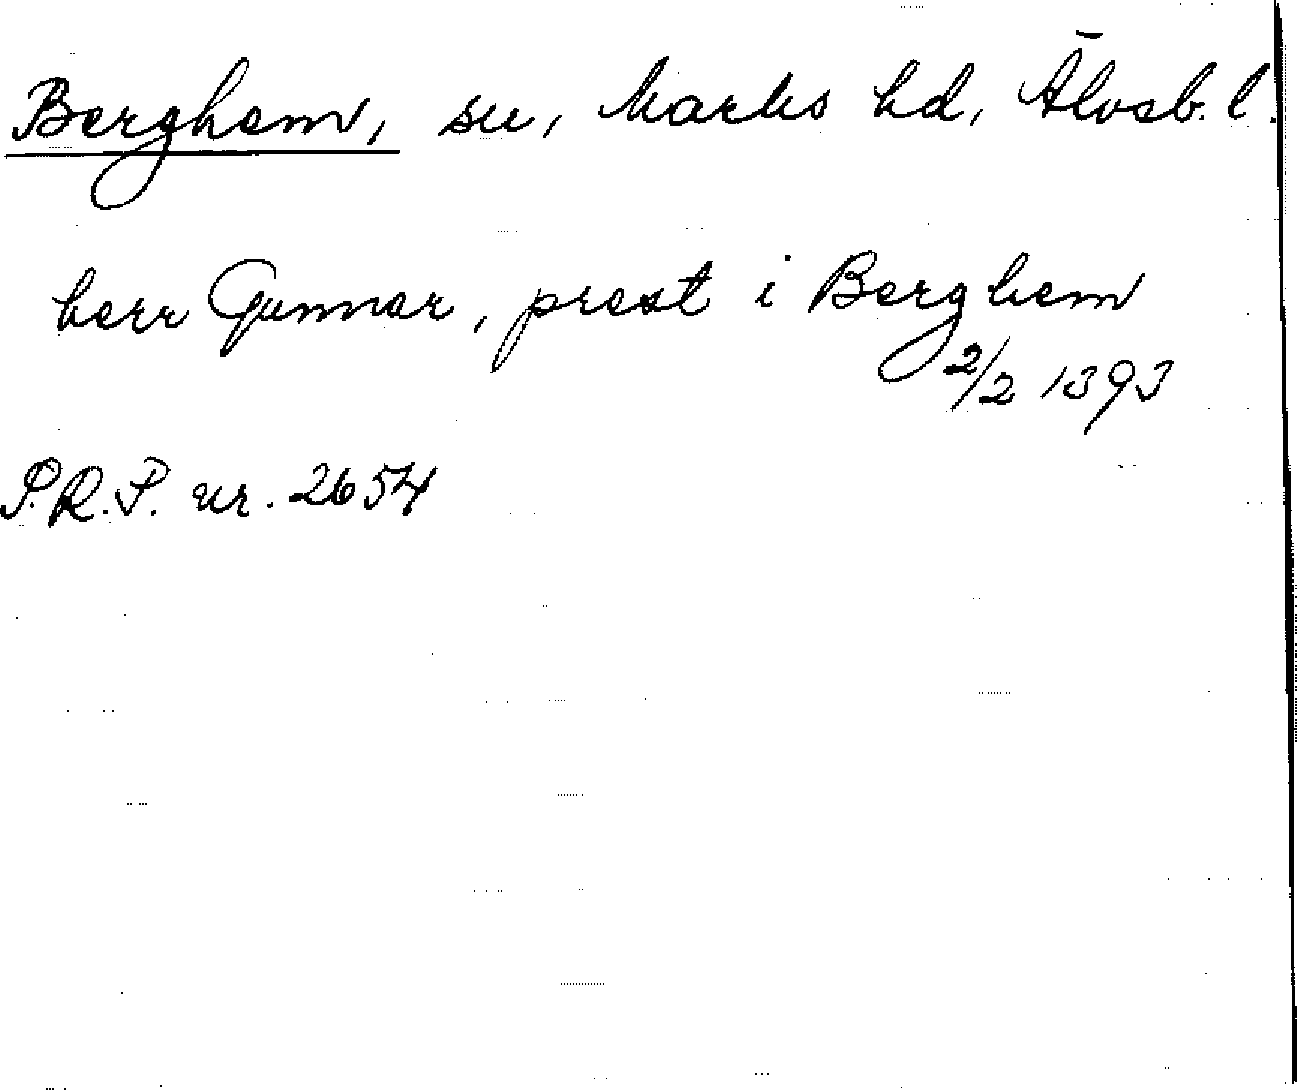 Berghem, sn, Marks hd, Älvsb. l.
herr Gunnar, prest i Berghem
2/2 1393
P.R.P. nr. 2654